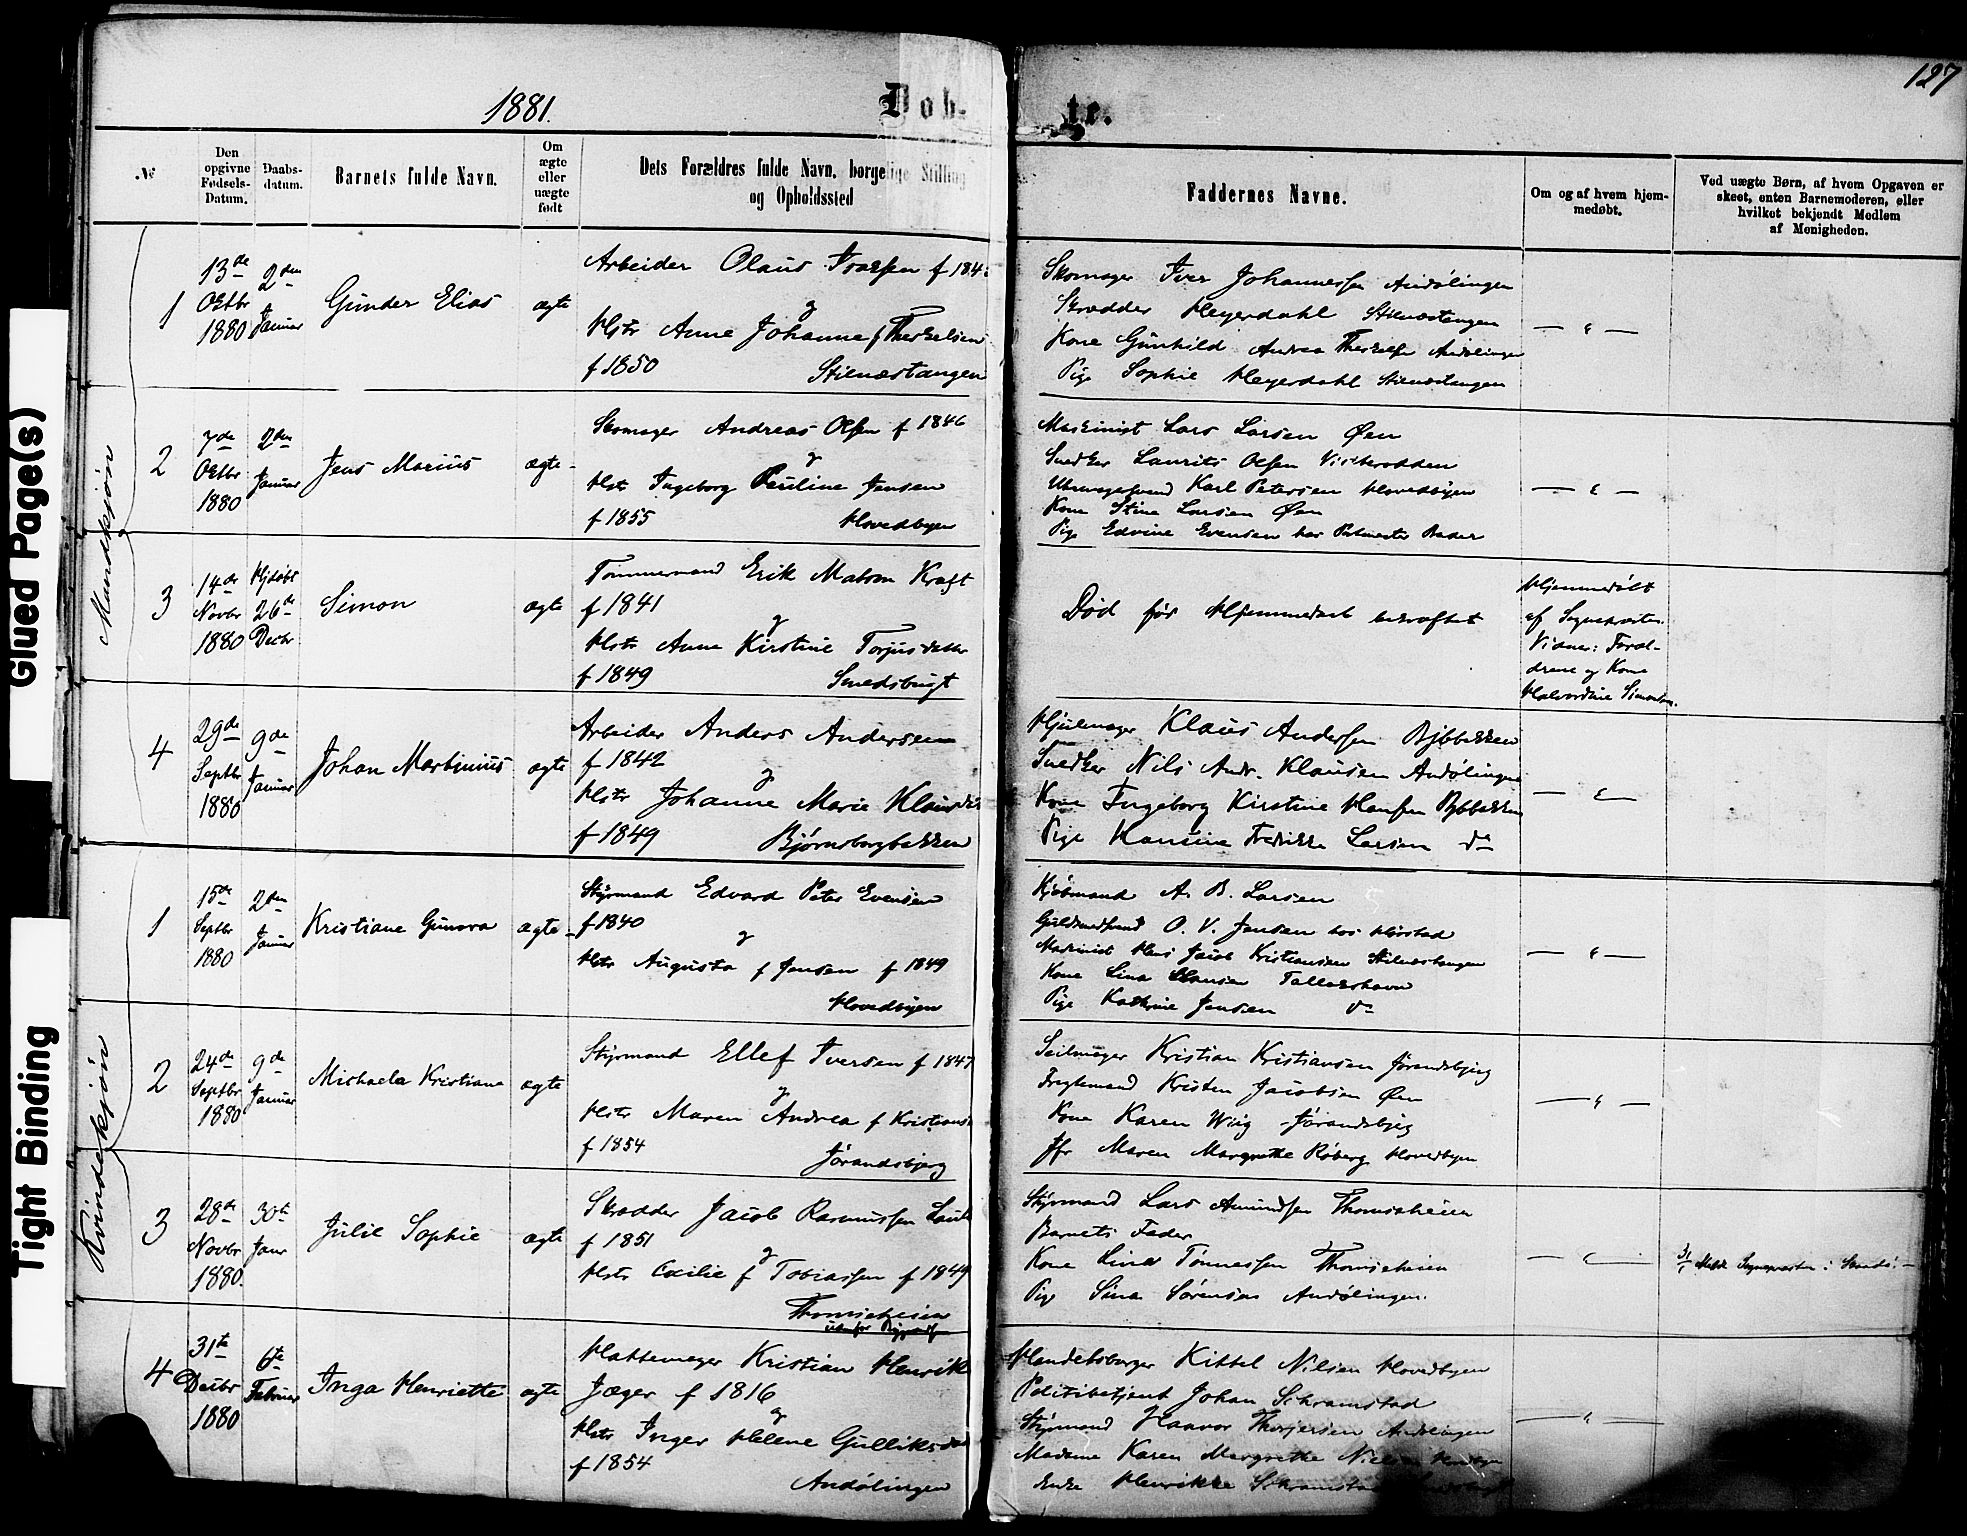 1881.
Døb-
te.
127
№
Den opgivne Fødsels-Datum.
Daabs-datum.
Barnets fulde Navn.
Om ægte eller uægte født
Dets Forældres fulde Navn, borgelige Stilling og Opholdssted
Faddernes Navne.
Om og af hvem hjem-medøbt.
Ved uægte Børn, af hvem Opgaven er skeet, enten Barnemoderen, eller hvilket bekjendt Medlem af Menigheden.
Mandkjøn
1
13de Oktbr 1880
2den Januar
Gunder Elias
ægte
Arbeider Olaus Ivarsen f 184
og
Hstr Anne Johanne f Therkelsen
f 1850 Stilnæstangen
Skomager Iver Johannessen Andølingen
Skrædder Heyerdahl Stilnæstangen
Kone Gunhild Andrea Therkelsen Andølingen
Pige Sophie Heyerdahl Stilnæstangen
— " —
2
7de Oktbr 1880
2den Januar
Jens Marius
ægte
Skomager Andreas Olsen f 1846
og
Hstr Ingeborg Pauline Jensen
f 1855 Hovedbyen
Maskinist Lars Larsen Øen
Snedker Laurits Olsen
Karl Petersen Hovedbyen
Kone Stine Larsen Øen
Pige Edvine Evensen hos Postmester Bader
— " —
3
14de Novbr 1880
Hjdøbt 26de Decbr
Simon
ægte
Tømmermand Erik Matson Kraft
f 1841
og
Hstr Anne Kirstine Torjusdatter
f 1849 Smedsbugt
Død før Hjemmedaab bekræftet
Hjemmedøbt
af Sognepresten.
Vidner: Foræl-
drene og Kone
Halvordine Simonsen.
4
29de Septbr 1880
9de Januar
Johan Martinius
ægte
Arbeider Anders Andersen
f 1842
og
Hstr Johanne Marie Klausdtr
f 1849 Bjørnsborgbakken
Hjulmager Klaus Andersen Bjbbakken
Snedker Nils Andr. Klausen Andølingen
Kone Ingeborg Kirstine Hansen Bjbbakken
Pige Hansine Fredrikke Larsen do
— " —
Kvindekjøn
1
15de Septbr 1880
2den Januar
Kristiane Gunova
ægte
Styrmand Edvard Peter Evensen
f 1840
og
Hstr Augusta f Jensen f 1849
Hovedbyen
Kjøbmand A. B. Larsen
Guldsmedsvend O. V. Jensen hos Hørstad
Maskinist Hans Jacob Kristiansen Stilnæstangen
Kone Lina Hansen Tallakshavn
Pige Kathrine Jensen do
— " —
2
24de Septbr 1880
9de Januar
Michaela Kristiane
ægte
Styrmand Ellef Iversen f 1847
og
Hstr Maren Andrea f Kristians
f 1854 Jørandsbjerg
Seilmager Kristian Kristiansen Jørandsbjerg
Fragtemand Kristen Jacobsen Øen
Kone Karen Wiig Jørandsbjerg
Jfr Maren Margrethe Røberg Hovedbyen
— " —
3
28de Novbr 1880.
30te Janr
Julie Sophie
ægte
Skrædder Jacob Rasmussen
f 1851
og
Hstr Cæcilie f Tobiassen f 1849
Thomisheien
Styrmand Lars Amundsen Thomisheien
Barnets Fader
Kone Lina Tønnessen Thomisheien
Pige Sina Sørensen Andølingen.
— " —
31/1 Meldt Sognepresten i
4
31te Decbr 1880
6te Februar
Inga Henriette
ægte
Hattemager Kristian Henrik
Jæger f 1816
og
Hstr Inger Helene Gulliksdatt
f 1854
Andølingen
Handelsborger Kittel Nilsen Hovedbyen
Politibetjent Johan Schramstad
Styrmand Haavor Thorjersen Andølingen
Madame Karen Margrethe Nielsen Hovedbyen
Enke Henrikke Schramstad
— " —
Glued Page(s)
Tight Binding